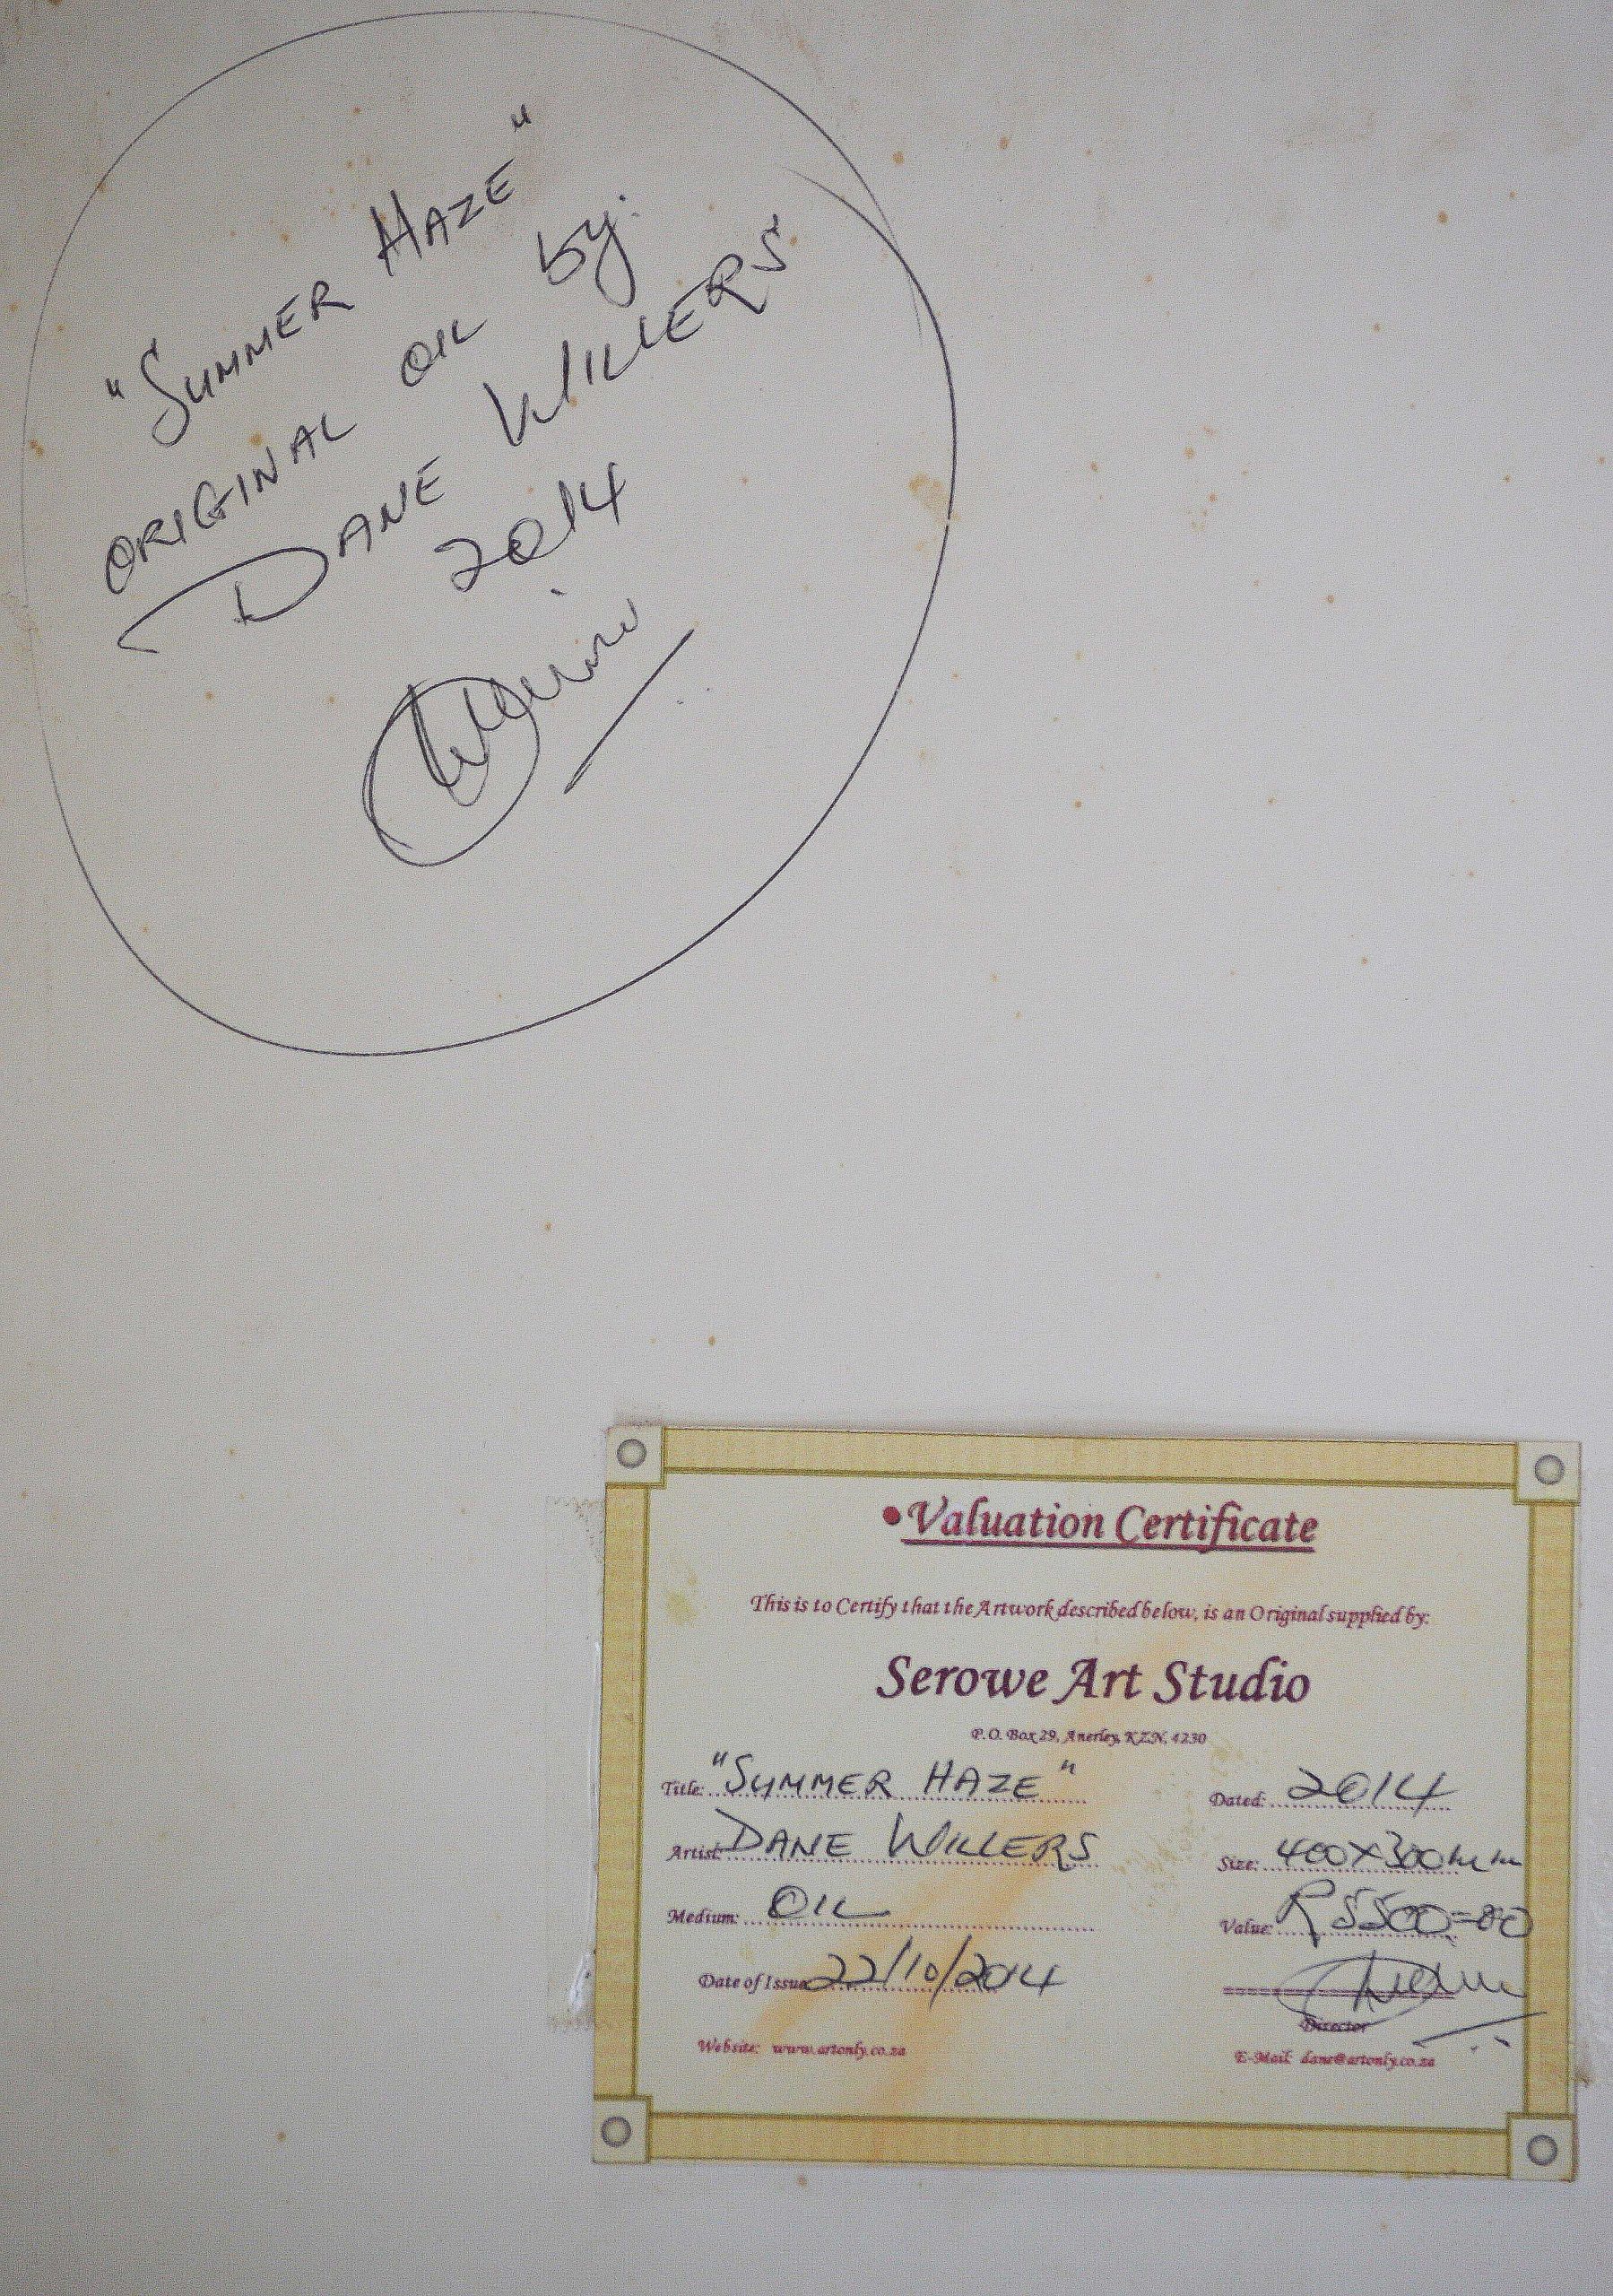 "SUMMER HAZE"
ORIGINAL OIL by:
DANE WILLERS
2014
• Valuation Certificate
This is to Certify that the Artwork described below, is an Original supplied by:
Serowe Art Studio
P.O. Box 29, Anerley, KZN, 4230
Title: "SUMMER HAZE" Dated: 2014
Artist: DANE WILLERS Size: 400x300mm
Medium: OIL Value: R5500=00
Date of Issue 22/10/2014
Director
Website: www.artonly.co.za E-Mail: dane@artonly.co.za